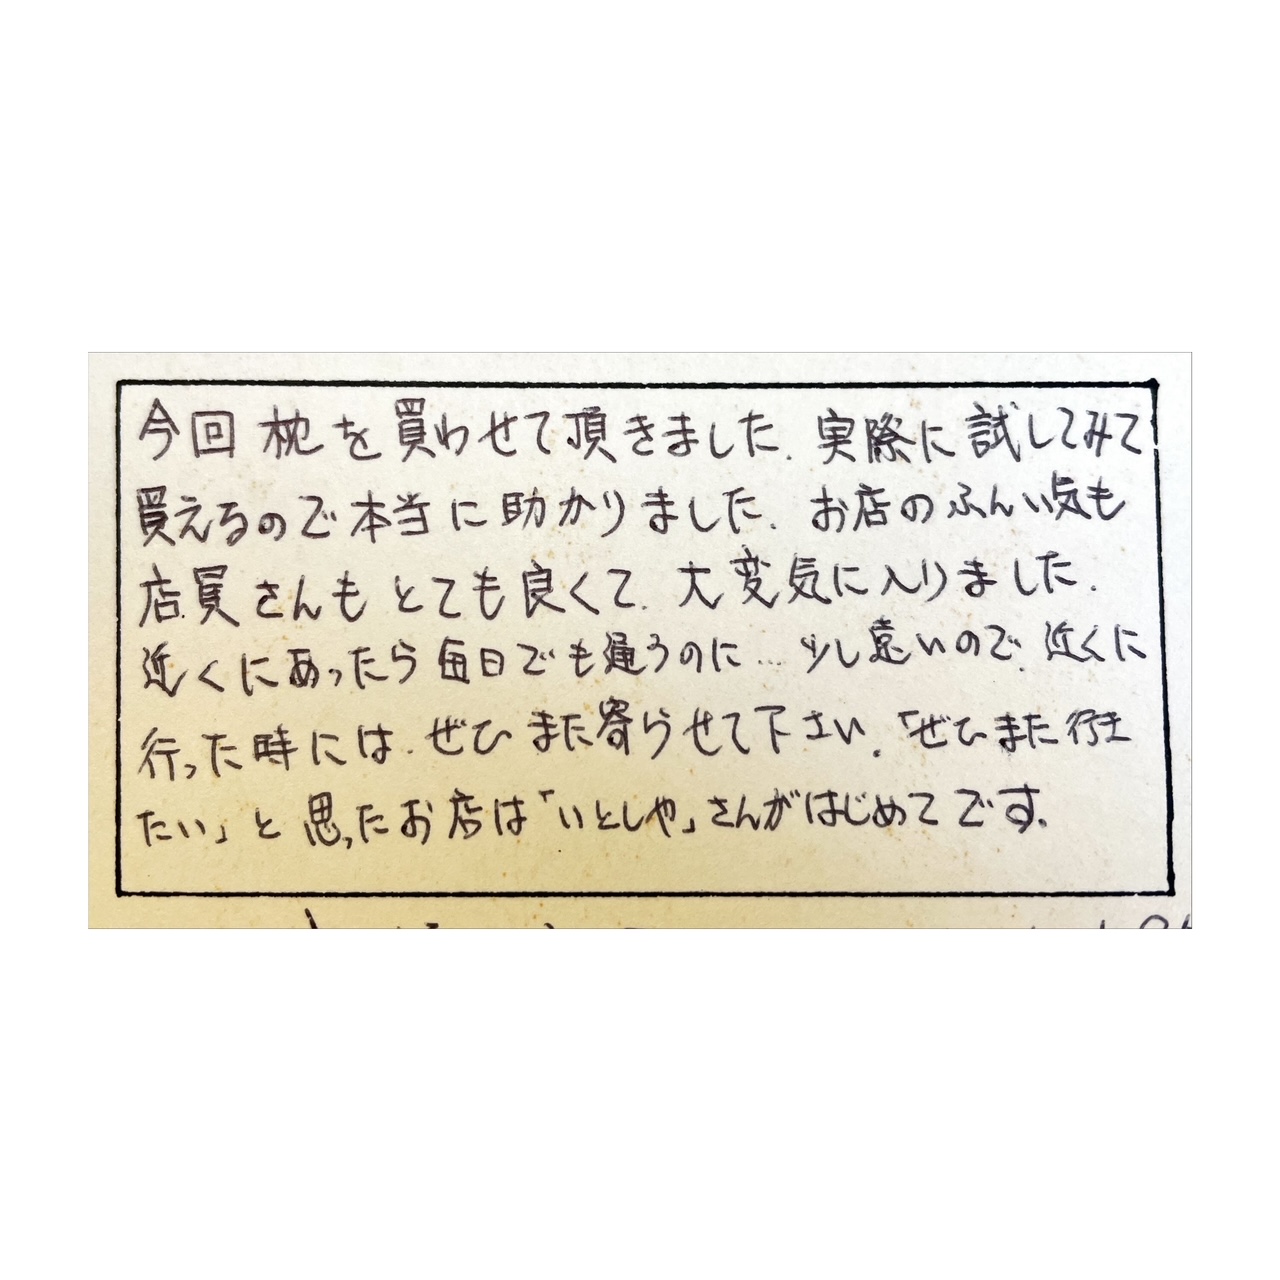 今回 枕を買わせて頂きました。実際に試してみて
買えるので本当に助かりました。お店のふんい気も
店員さんもとても良くて、大変気に入りました。
近くにあったら毎日でも通うのに…少し遠いので、近くに
行った時には、ぜひまた寄らせて下さい。「ぜひまた行き
たい」と思ったお店は「いとしや」さんがはじめてです。